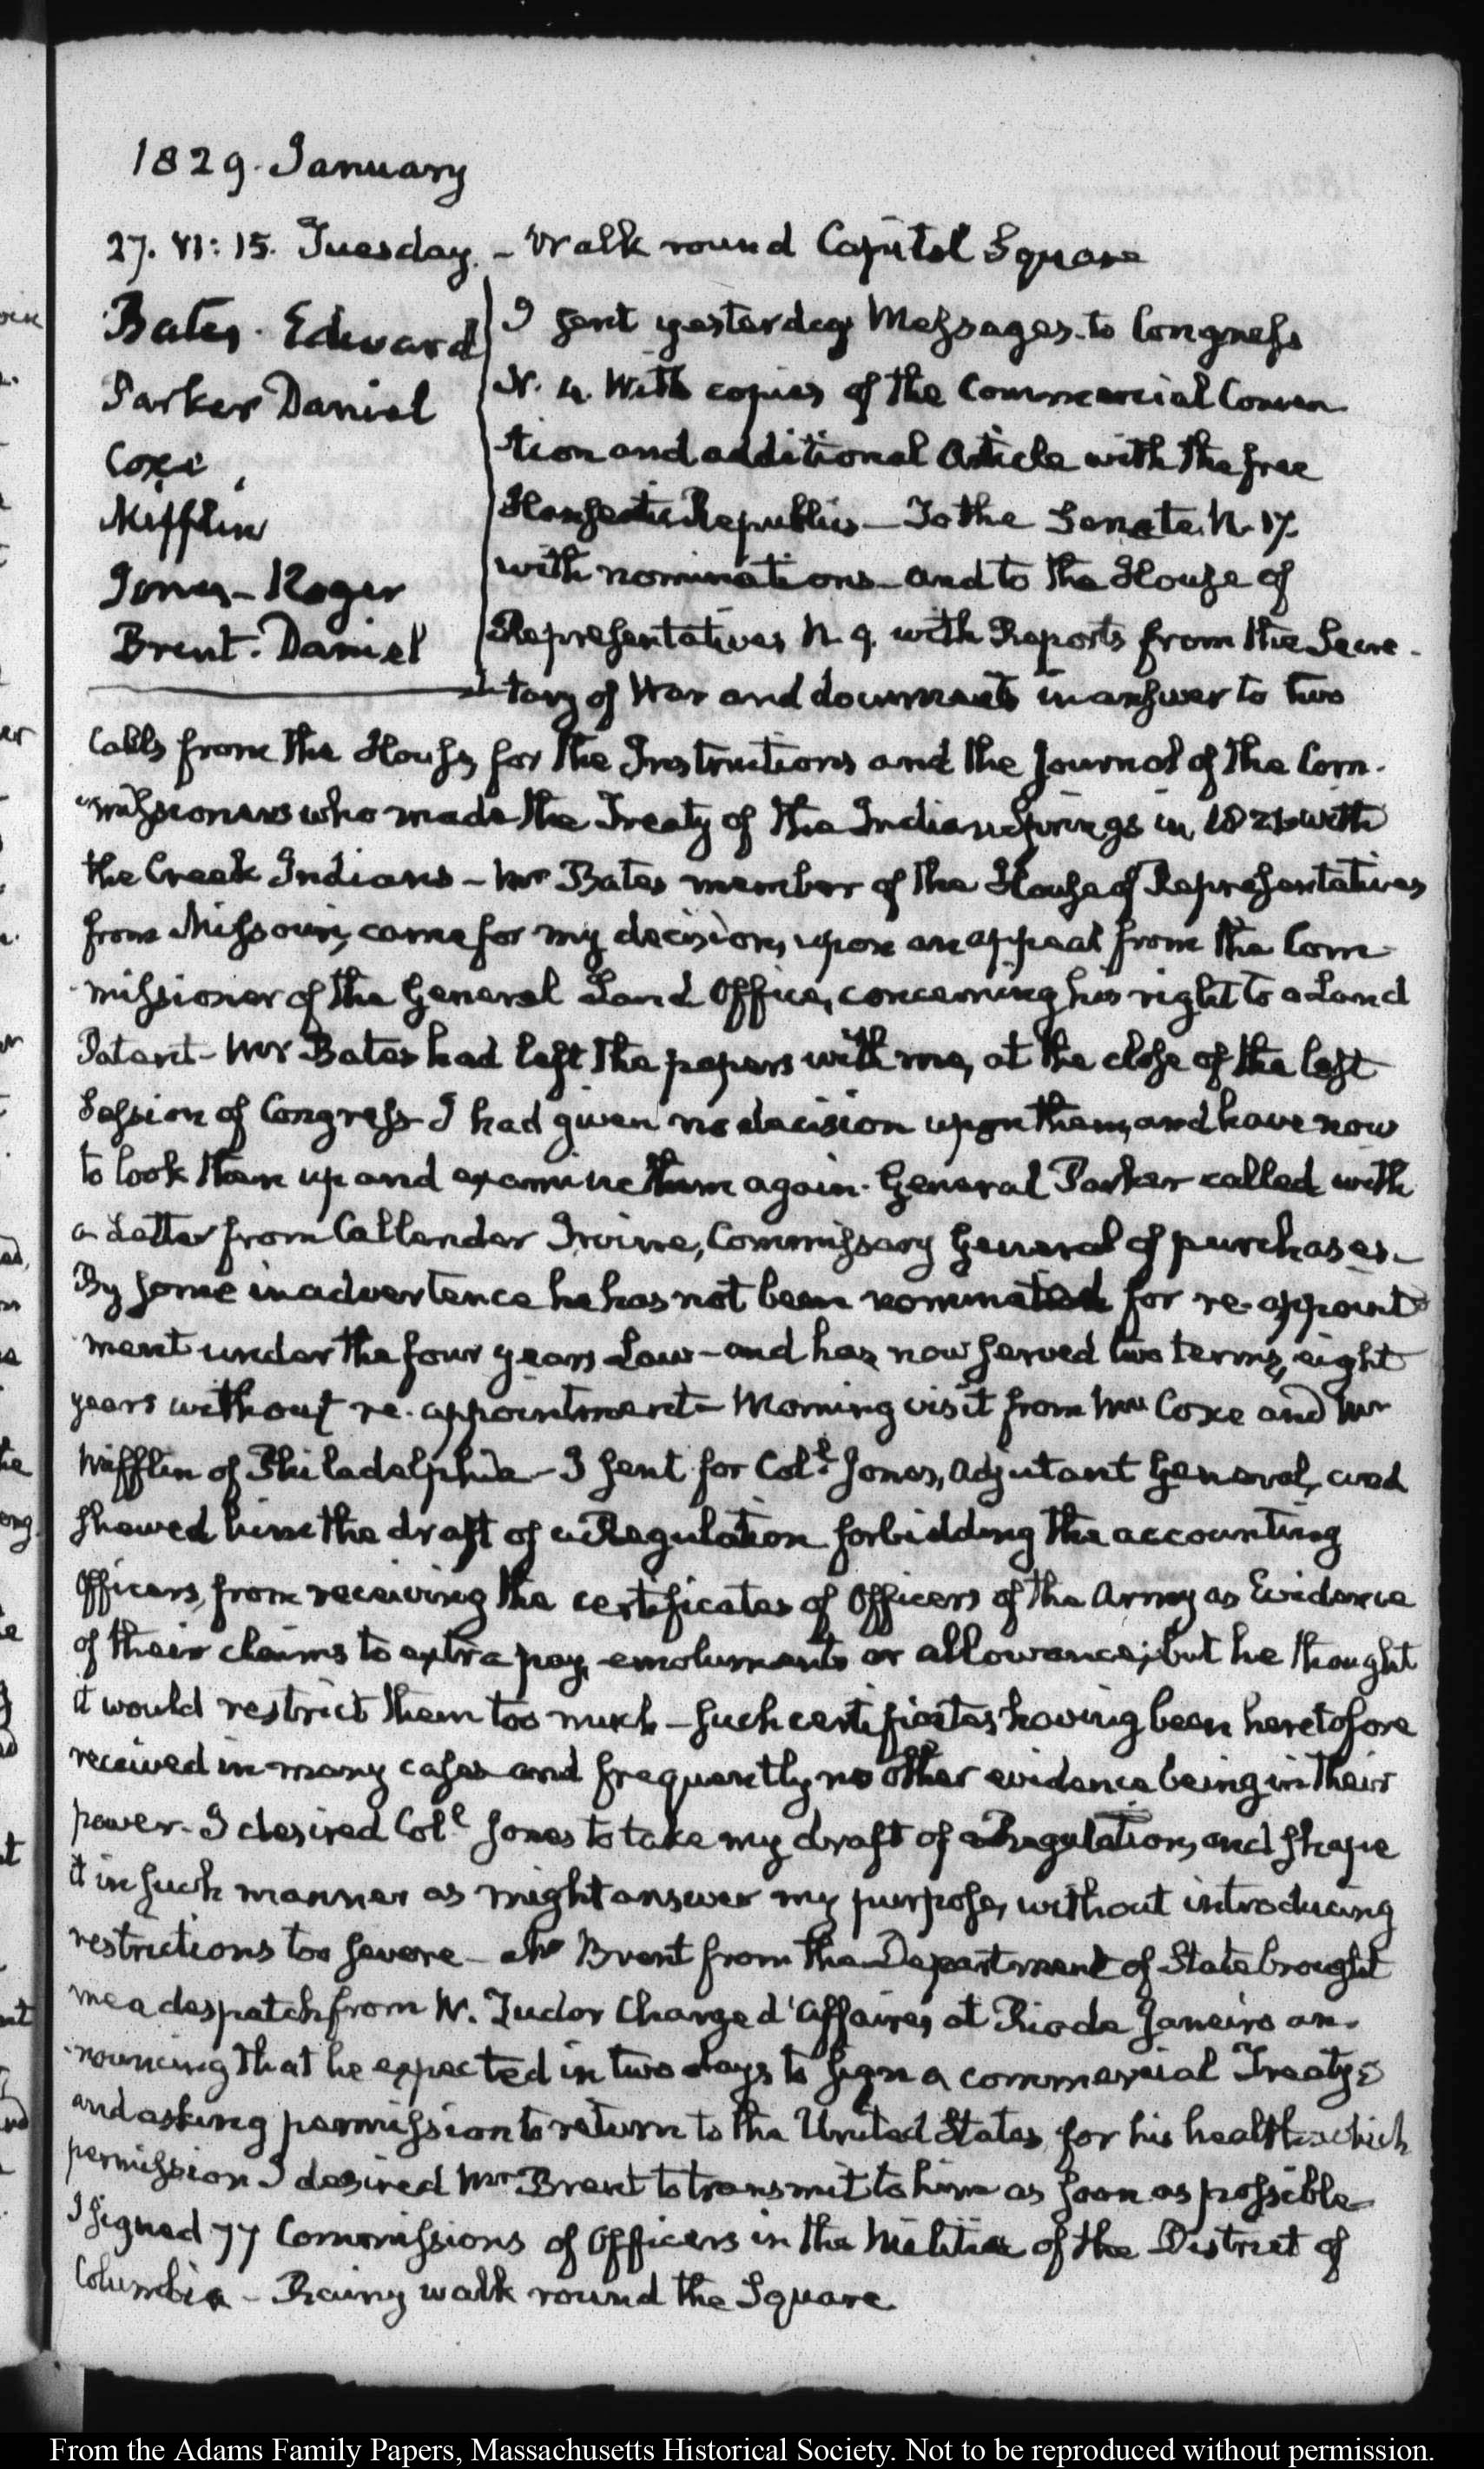 1829. January
27. VI: 15. Tuesday. - Walk round Capitol Square
Bates. Edward
Parker Daniel
Coxe
Mifflin
Jones - Roger
Brent. Daniel
I sent yesterday Messages to Congress
N. 4. With copies of the Commercial Conven
tion and additional Article with the free
Hanseatic Republics — To the Senate N. 17.
with nominations — and to the House of
Representatives N. 9. with Reports from the Secre-
tary of War and documents in answer to two
Calls from the House, for the Instructions and the Journal of the Com-
missioners who made the Treaty of the Indian Springs in 1821 with
the Creek Indians - Mr Bates member of the House of Representatives
from Missouri, came for my decision, upon an appeal from the Com-
missioner of the General Land Office, concerning his right to a Land
Patent - Mr Bates had left the papers with me, at the close of the last
Session of Congress - I had given no decision upon them, and have now
to look them up and examine them again. General Parker called with
a Letter from Callender Irvine, Commissary General of purchases. -
By some inadvertence he has not been nominated for re-appoint
ment under the four years Law - and has now served two terms, eight
years without re-appointment - Morning visit from Mr Coxe and Mr
Mifflin of Philadelphia - I sent for Coll. Jones, Adjutant General, and
shewed him the draft of a Regulation forbidding the accounting
Officers, from receiving the certificates of Officers of the Army as Evidence
of their claims to extra pay, emoluments or allowance; but he thought
it would restrict them too much - such certificates having been heretofore
received in many cases and frequently no other evidence being in their
power - I desired Coll Jones to take my draft of a Regulation, and shape
it in such manner as might answer my purpose, without introducing
restrictions too severe - Mr Brent from the Department of State brought
me a despatch from W. Tudor Charge d'Affaires at Rio de Janeiro an-
nouncing that he expected in two days to sign a commercial Treaty;
and asking permission to return to the United States for his health which
permission I desired Mr Brent to transmit to him as soon as possible -
I signed 77 Commissions of Officers in the Militia of the District of
Columbia - Rainy walk round the Square
From the Adams Family Papers, Massachusetts Historical Society. Not to be reproduced without permission.